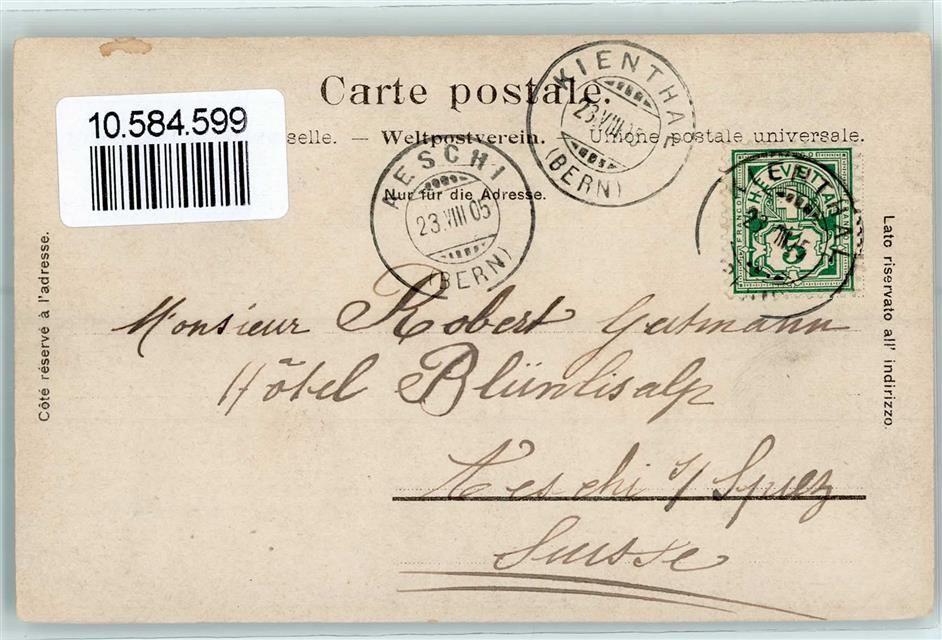 Carte postale.
10.584.599
selle. — Weltpostverein. — Unione postale universale.
Nur für die Adresse.
KIENTHAL
23.VIII.05
(BERN)
AESCHI
23.VIII 05
(BERN)
HELVETIA
FRANCO
5
Côté réservé à l'adresse.
Lato riservato all' indirizzo.
Monsieur Robert Gutmann
Hôtel Blümlisalp
Aeschi s/ Spiez
Suisse